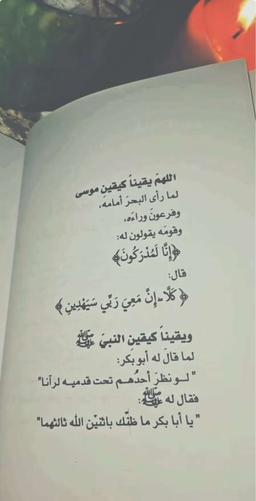 اللهم يقيناً كيقين موسى
لما رأى البحرَ أمامهُ،
وفرعون وراءه،
وقومَه يقولون له:
﴿إِنَّا لَمُدْرَكُونَ﴾
قال:
﴿كَلَّا إِنَّ مَعِيَ رَبِّي سَيَهْدِينِ﴾
ويقيناً كيقينِ النبيّ ﷺ
لما قالَ له أبو بكرٍ:
"لـو نظرَ أحدُهـم تحت قدميـه لرآنا"
فقال له ﷺ:
"يا أبا بكر ما ظنُّك باثنيْنِ الله ثالثهما"